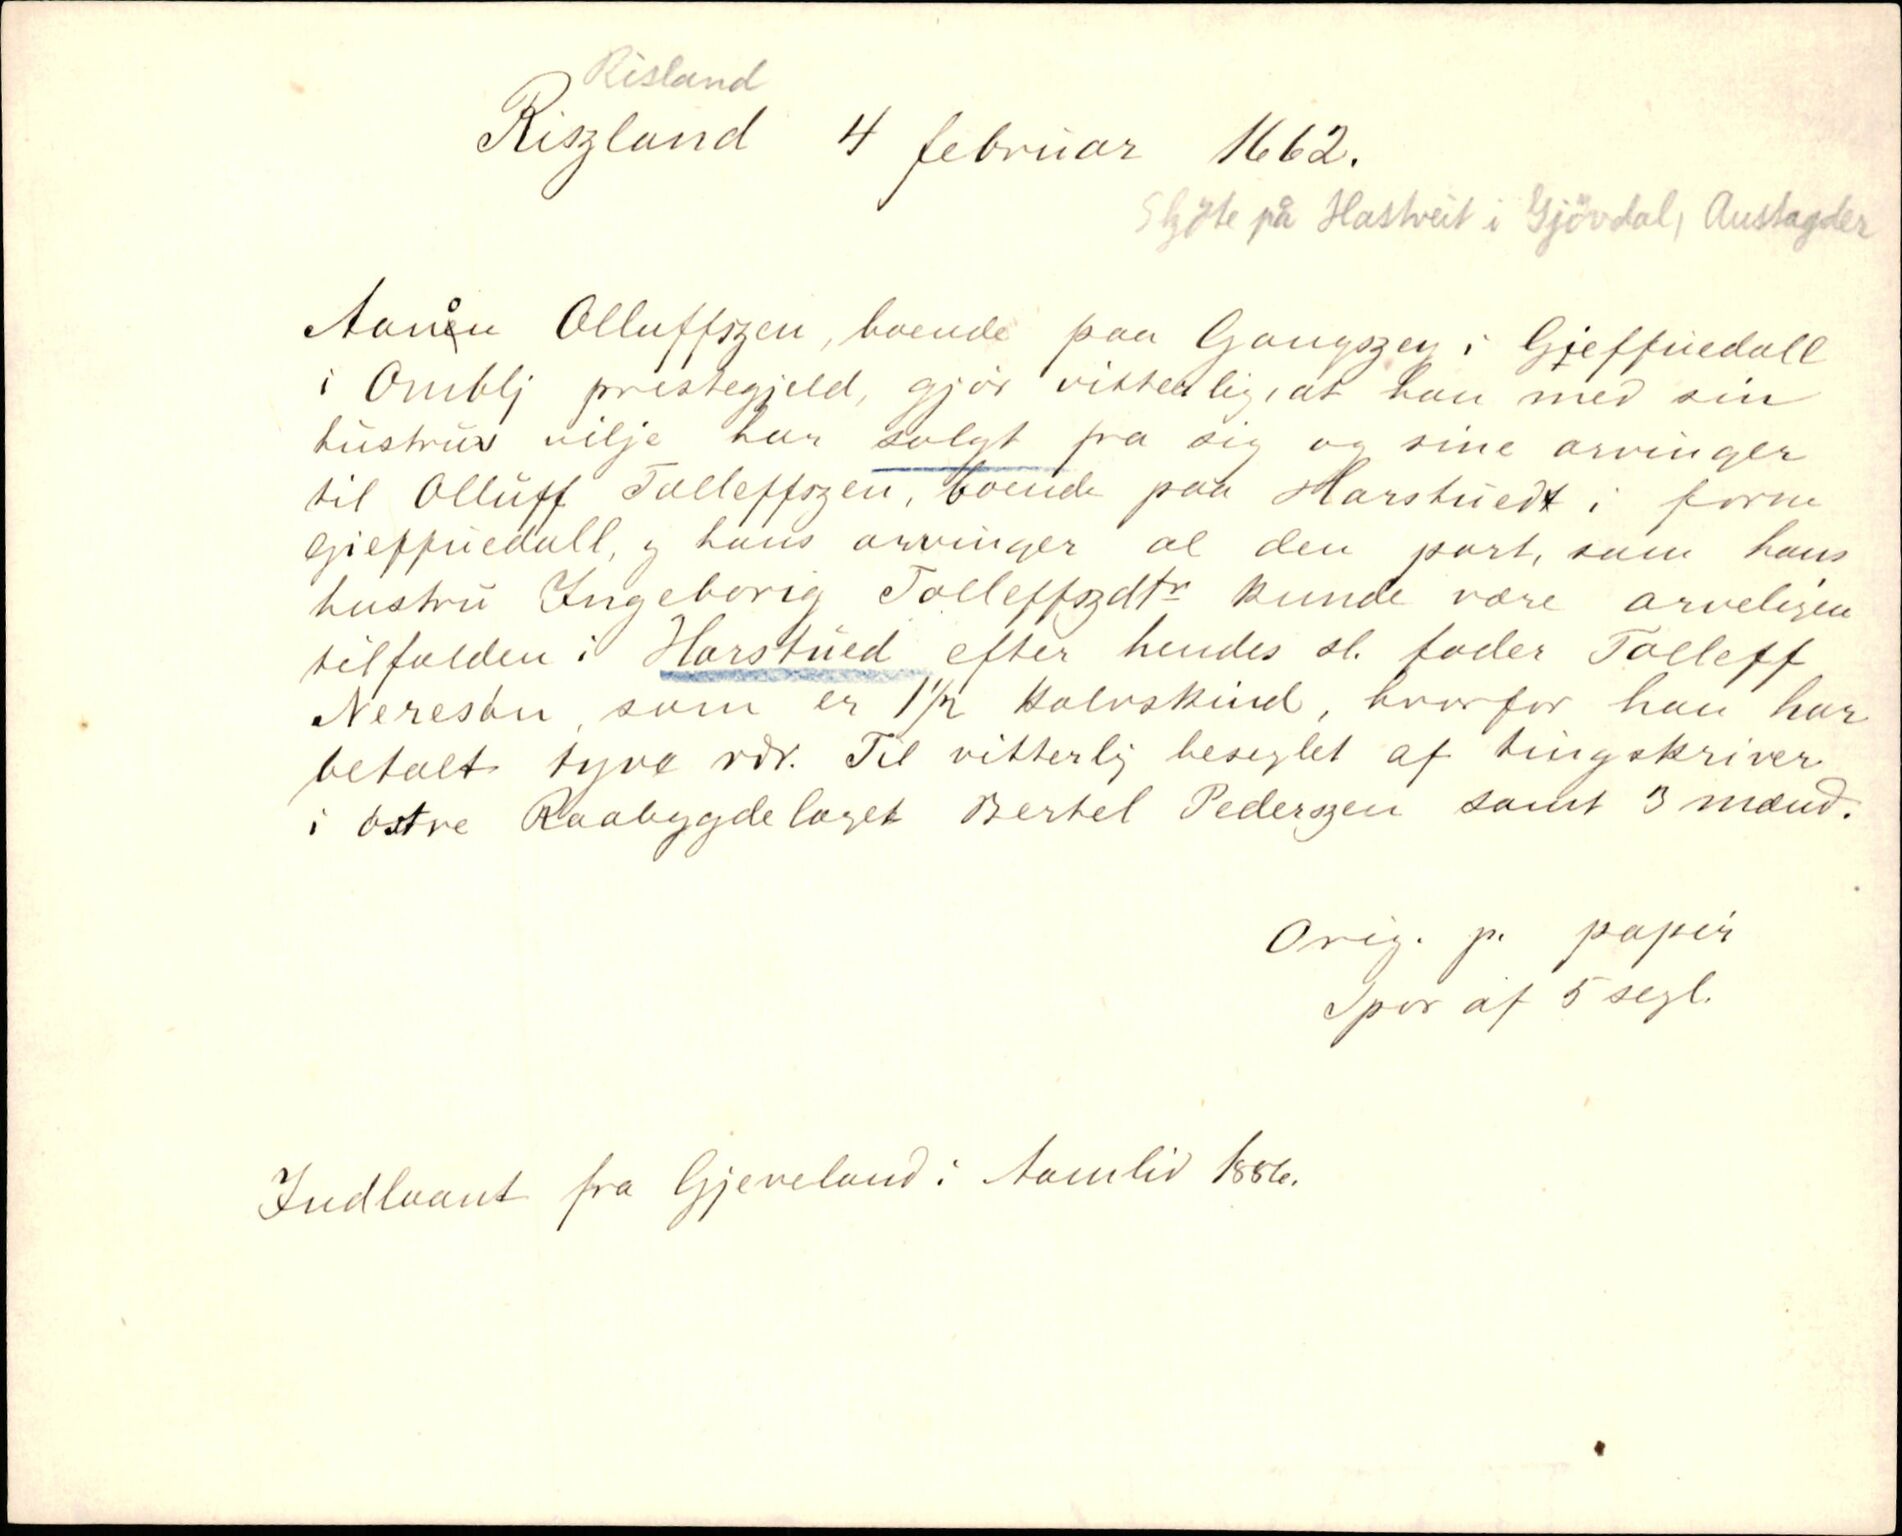 Risland
Riszland 4 februar 1662.
Skjøte på Hastveit i Gjövdal, Austagder
Aanen Olluffszen, boende paa Gangszey i Gjeffuedall
i Omblj prestegjeld, gjör vitterlig, at han med sin
hustrus vilje har solgt fra sig og sine arvinger
til Olluff Tolleffszen, boende paa Harstuedt i forne
Gieffuedall, og hans arvinger al den part, som hans
hustru Ingeborig Tolleffszdtr kunde være arveligen
tilfalden i Harstued efter hendes sl. fader Tolleff
Neresön, som er 1 1/2 kalvskind, hvorfor han har
betalt tyve rdr. Til vitterlig beseglet af tingskriver
i östre Raabygdelaget Bertel Pederszen samt 3 mænd.
Orig. p. papir
Spor af 5 segl.
Indlaant fra Gjeveland i Aamlid 1886.